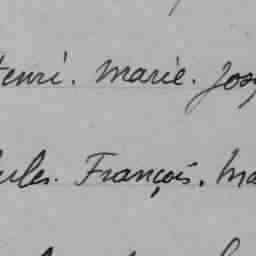 Henri. Marie. Jos
Jules. François. Ma